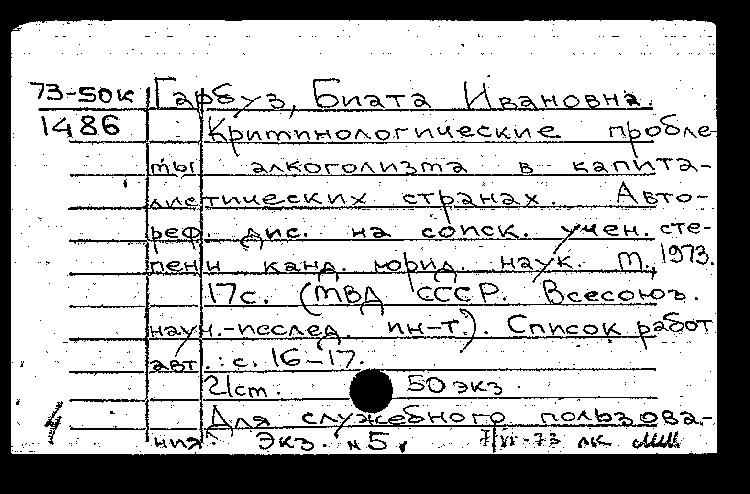 73-50к Гарбуз, Биата Ивановна.
1486 Криминологические пробле-
мы алкоголизма в капита-
листических странах. Авто-
реф. дис. на соиск. учен. сте-
пени канд. юрид. наук. М., 1973.
17с. (МВД СССР. Всесоюз.
науч.-исслед. ин-т.). Список работ
авт.: с. 16-17.
21см. 50 экз.
Для служебного пользова-
4 ния. Экз. №5, 7/VI-73 лк